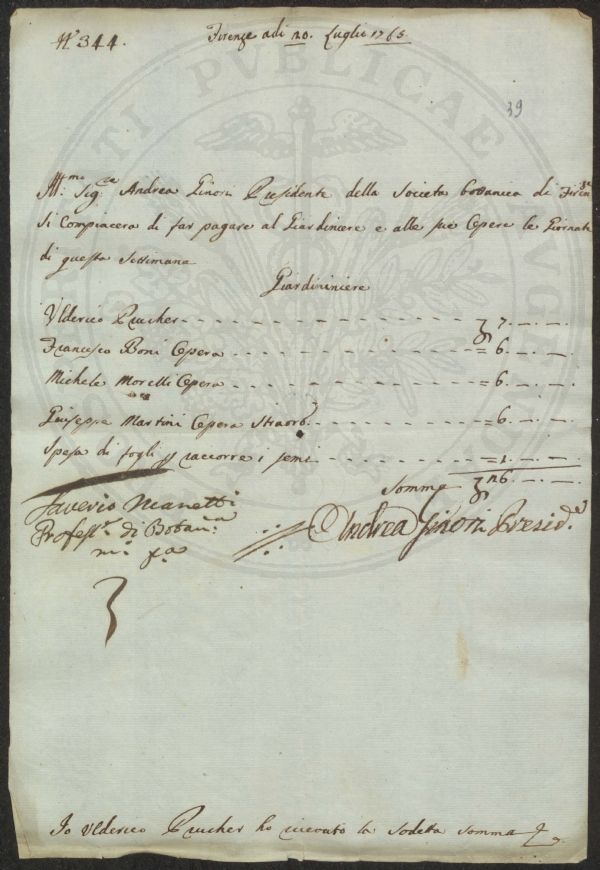 N.° 344.
Firenze adi 20. Luglio 1765.
39
Ill:mo Sig:re Andrea Ginori Presidente della Società botanica di Firenze
si Compiacerà di far pagare al Giardiniere e alle sue Opere le Giornate
di questa Settimana
Giardininiere
Ulderico Prucher - - - 7. — . —
Francesco Boni Opera - - - = 6. — . —
Michele Morelli Opera - - - = 6. — . —
Giuseppe Martini Opera Straord. - - - = 6. — . —
Spesa di fogli p raccorre i semi - - - = 1. — . —
Somma 26. — . —
Saverio Manetti
Profess.r di Botan.ca
m.o p.a
Andrea Ginori Presid.e
Io Ulderico Prucher ho ricevuto la sodetta somma
PUBLICAE